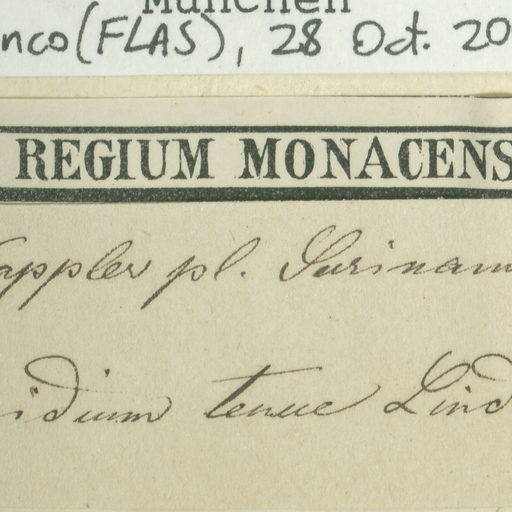 München
nco (FLAS), 28 Oct. 20
REGIUM MONACENS
appler pl. Surinam
idium tenue Lind